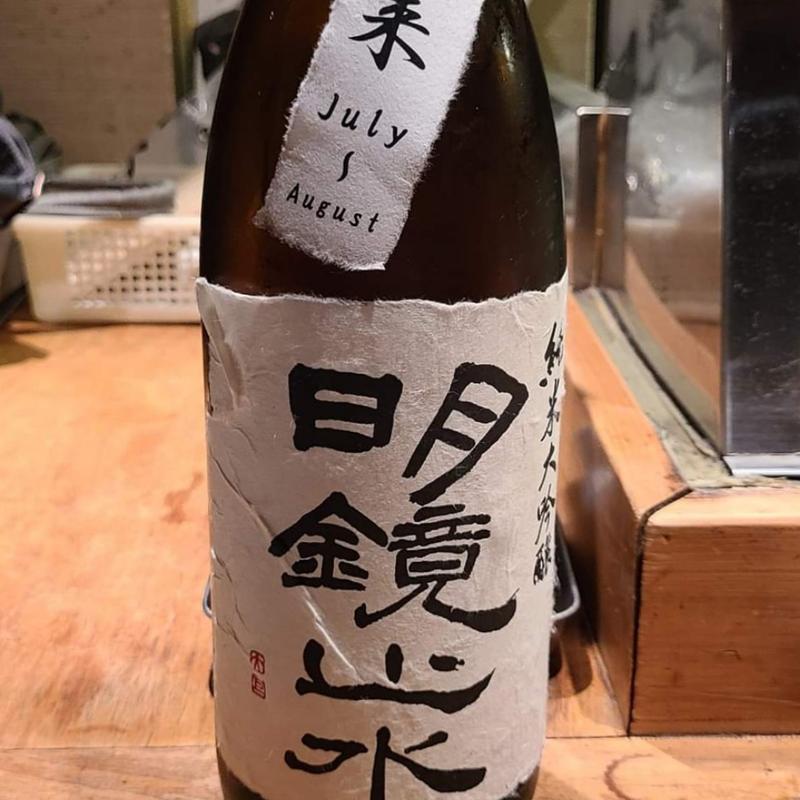 来
July
～
August
純米大吟醸
明鏡止水